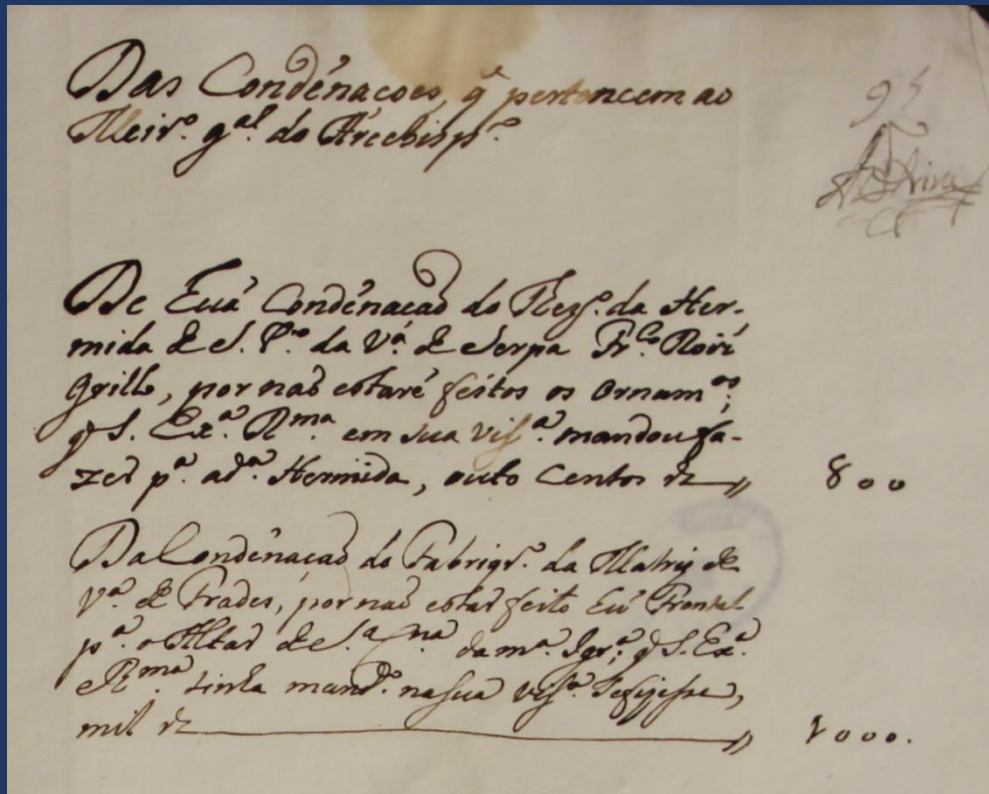 Das Condénacoes, q̃ pertencem ao
Meir.º g.al do Arcebisp.º
95
De huã Condénacaõ do Rez.º da Her-
mida de S. P.ro da V.ª de Serpa Fr.co Roiz
Grillo, por naõ estarẽ feitos os ornam.os,
q̃ S. Ex.ª R.ma em sua vis.ª mandou fa-
zer p.ª a d.ª Hermida, outo Centos rz 800
Da Condénacaõ do Fabriqr.º da Matriz de
V.ª de Frades, por naõ estar feito hũ Frontal
p.ª o Altar de S.ta da m.ª Igr.ª, q̃ S. Ex.ª
R.ma tinha mand.º na sua vis.ª
mil rz 1000.